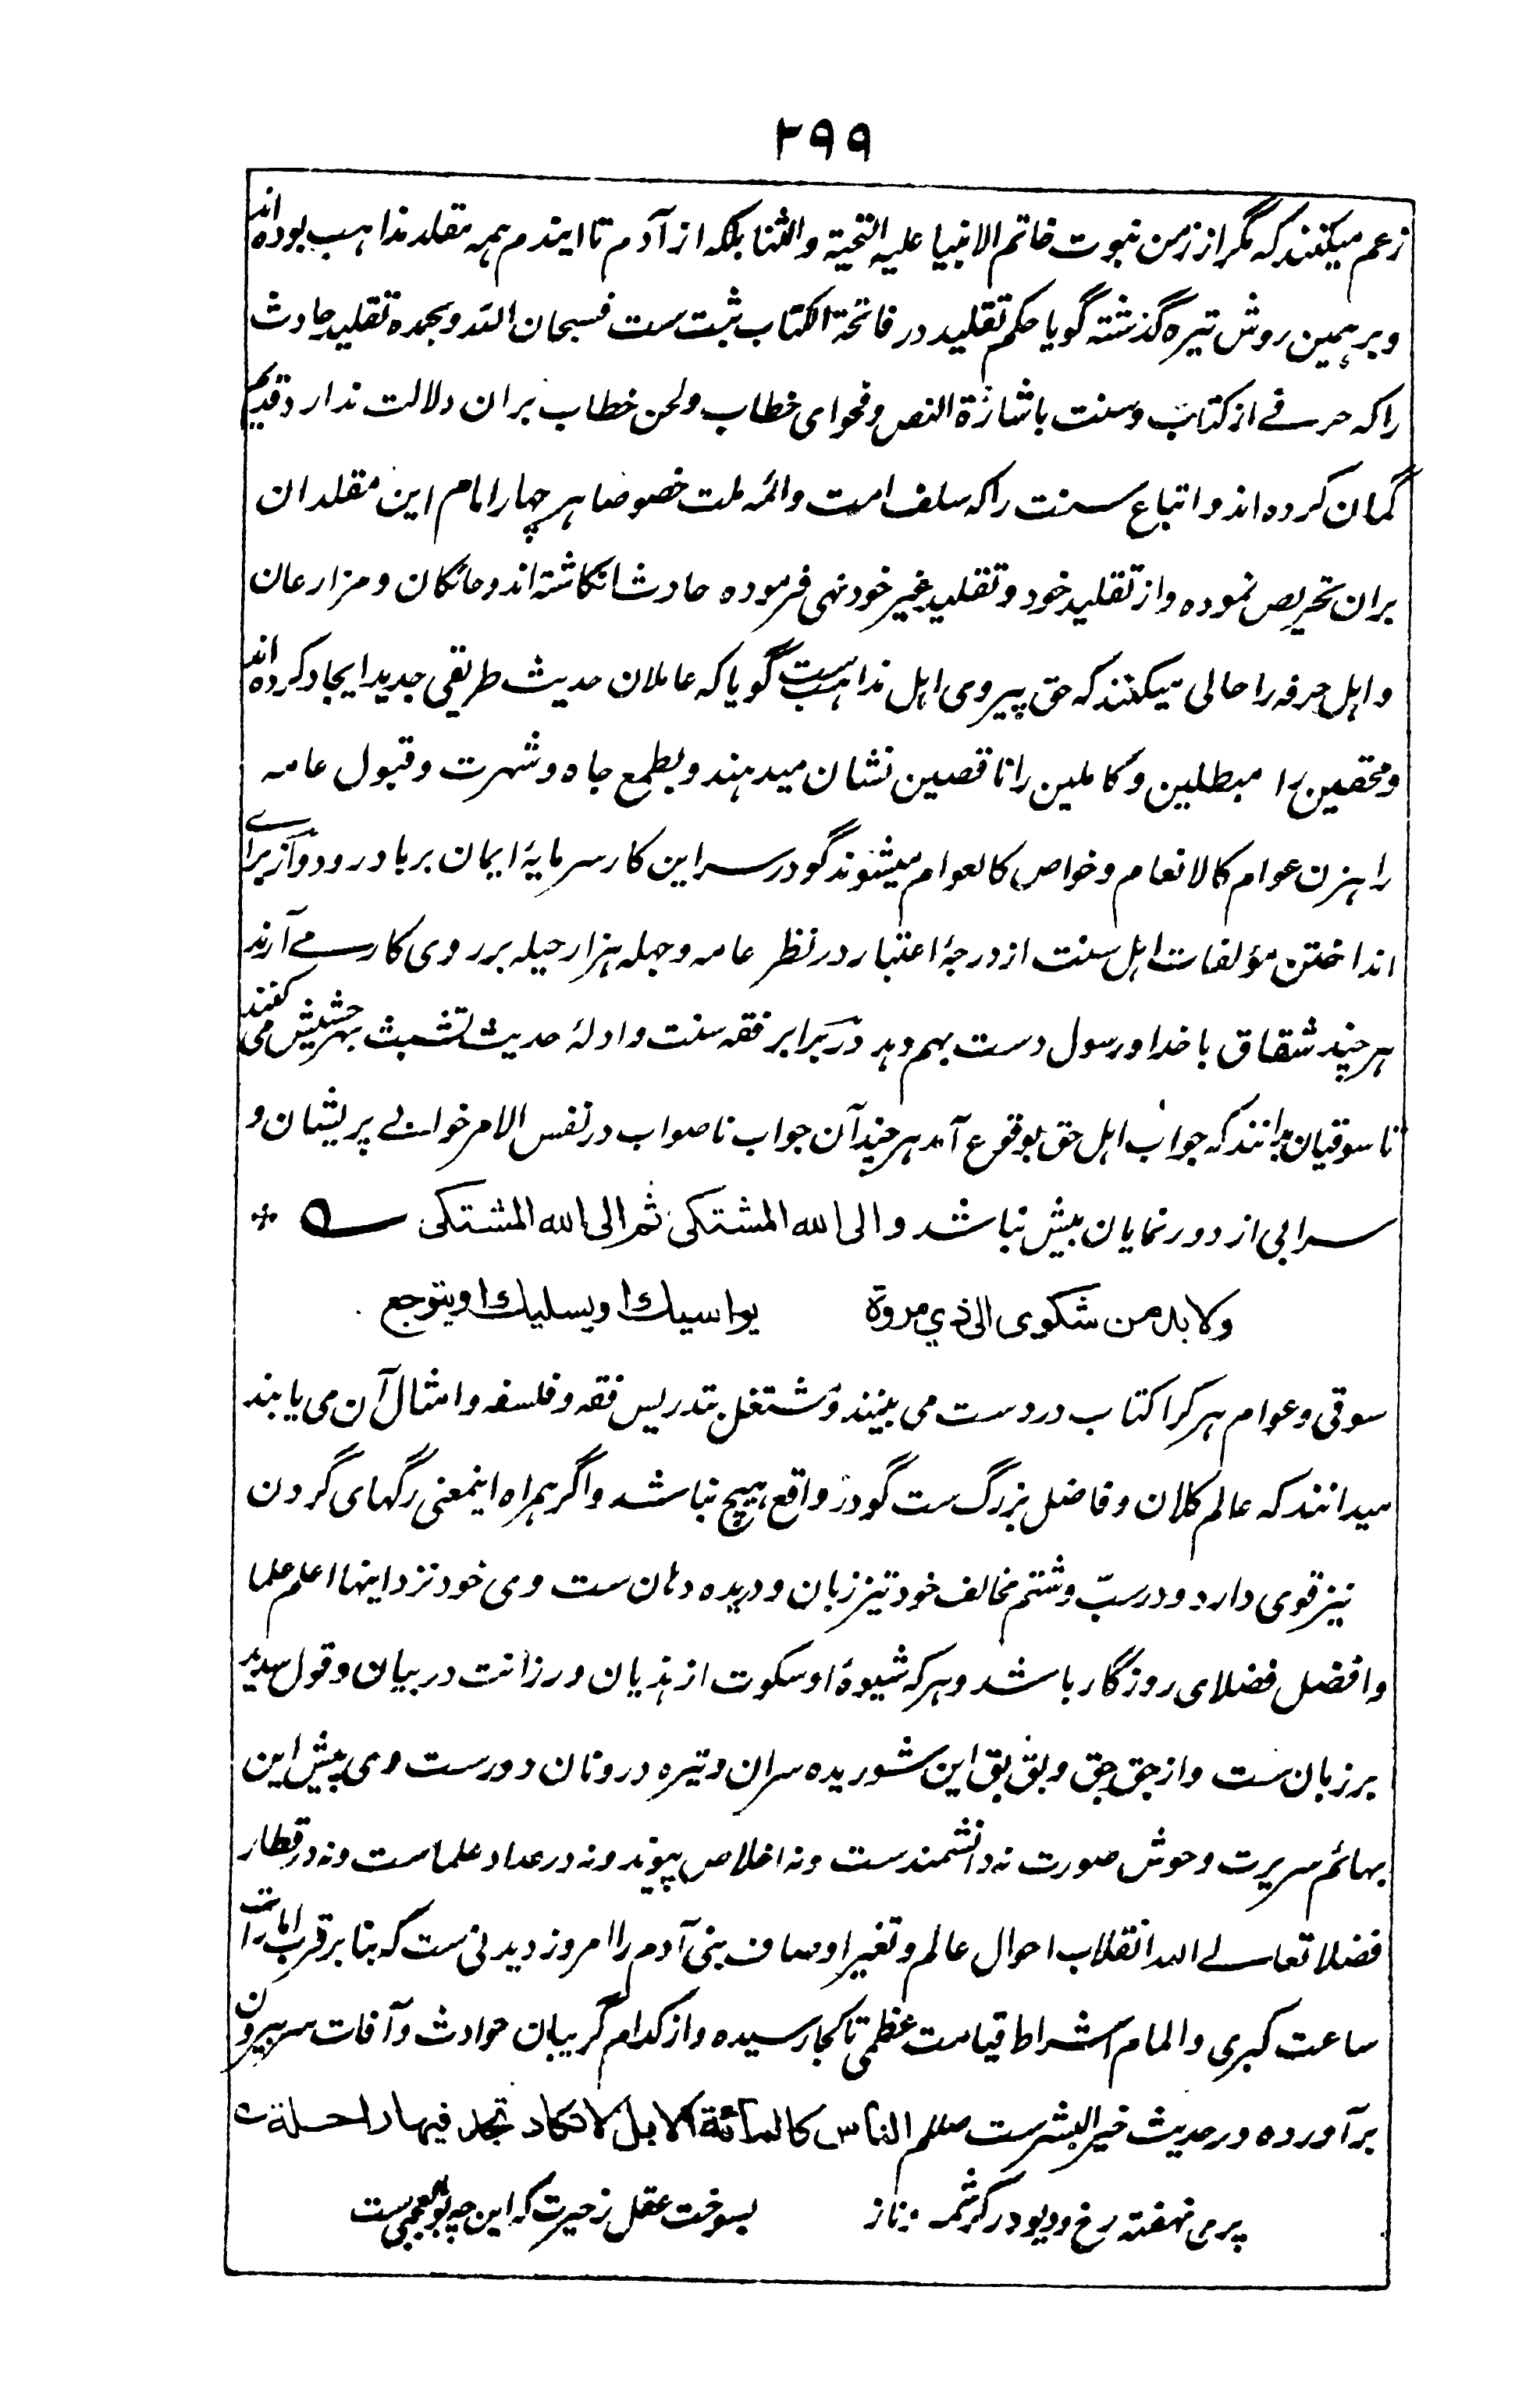 ۲۹۹
زعم میکنند که مگر از زمن نبوت خاتم الانبیا علیه التحیة والثنا بلکه از آدم تا ایندم همه مقلد مذاهب بوده اند
و بر همین روش تیره گذشته گویا حکم تقلید در فاتحة الکتاب ثبت ست فسبحان الله و بحمده تقلید حادث
را که حرفے از کتاب و سنت باشارة النص و فحوای خطاب و لحن خطاب بران دلالت ندارد قدیم
گمان کرده اند و اتباع سنت را که سلف امت و ائمه ملت خصوصا هر چهار امام این مقلدان
بران تحریص نموده و از تقلید خود و تقلید غیر خود نهی فرموده حادث انگاشته اند و حائکان و مزارعان
و اهل حرفه را حالی میکنند که حق پیروی اهل مذاهب ست گویا که عاملان حدیث طریقی جدید ایجاد کرده اند
و محقین را مبطلین و کاملین را ناقصین نشان میدهند و بطمع جاه و شهرت و قبول عامه
راهزن عوام کالانعام و خواص کالعوام میشوند گو در سر این کار سرمایهٔ ایمان برباد رود و از براے
انداختن مؤلفات اهل سنت از درجهٔ اعتبار در نظر عامه و جهله هزار حیله بر روی کار مے آرند
هر چند شقاق با خدا و رسول دست بهم دهد و در برابر فقه سنت و ادلهٔ حدیث تشبث بهر حشیش می کنند
تا سوقیان بدانند که جواب اهل حق بوقوع آمد هر چند آن جواب ناصواب در نفس الامر خوابے پریشان و
سرابی از دور نمایان بیش نباشد والی الله المشتکی ثم الی الله المشتکی ــه *
ولا بد من شکوی الی ذي مروة یواسیك او یسلیك او یتوجع
سوقی و عوام هر کرا کتاب در دست می بینند و مشتغل بتدریس فقه و فلسفه و امثال آن می یابند
میدانند که عالم کلان و فاضل بزرگ ست گو در واقع هیچ نباشد و اگر همراه اینمعنی رگهای گردن
نیز قوی دارد و در سبّ و شتم مخالف خود تیز زبان و دریده دهان ست وی خود نزد اینها اعلم علما
و افضل فضلای روزگار باشد و هر که شیوهٔ او سکوت از هذیان و رزانت در بیان و قول سدید
بر زبان ست و از جق جق و بق بق این شوریده سران و تیره درونان دورست وی پیش این
بهائم سریرت وحوش صورت نه دانشمندست و نه اخلاص پیوند و نه در عداد علماست و نه در قطار
فضلا تعالے الله انقلاب احوال عالم و تغیر اوصاف بنی آدم را امروز دیدنی ست که بنا بر قرب امارات
ساعت کبری و المام اشراط قیامت عظمی تا کجا رسیده و از کدام گریبان حوادث و آفات سر بیرون
برآورده و در حدیث خیر البشرست صللم الناس کالمائة الابل لا تکاد تجد فیها راحلة
پری نهفته رخ و دیو در کرشمه و ناز بسوخت عقل ز حیرت که این چه بوالعجبی ست